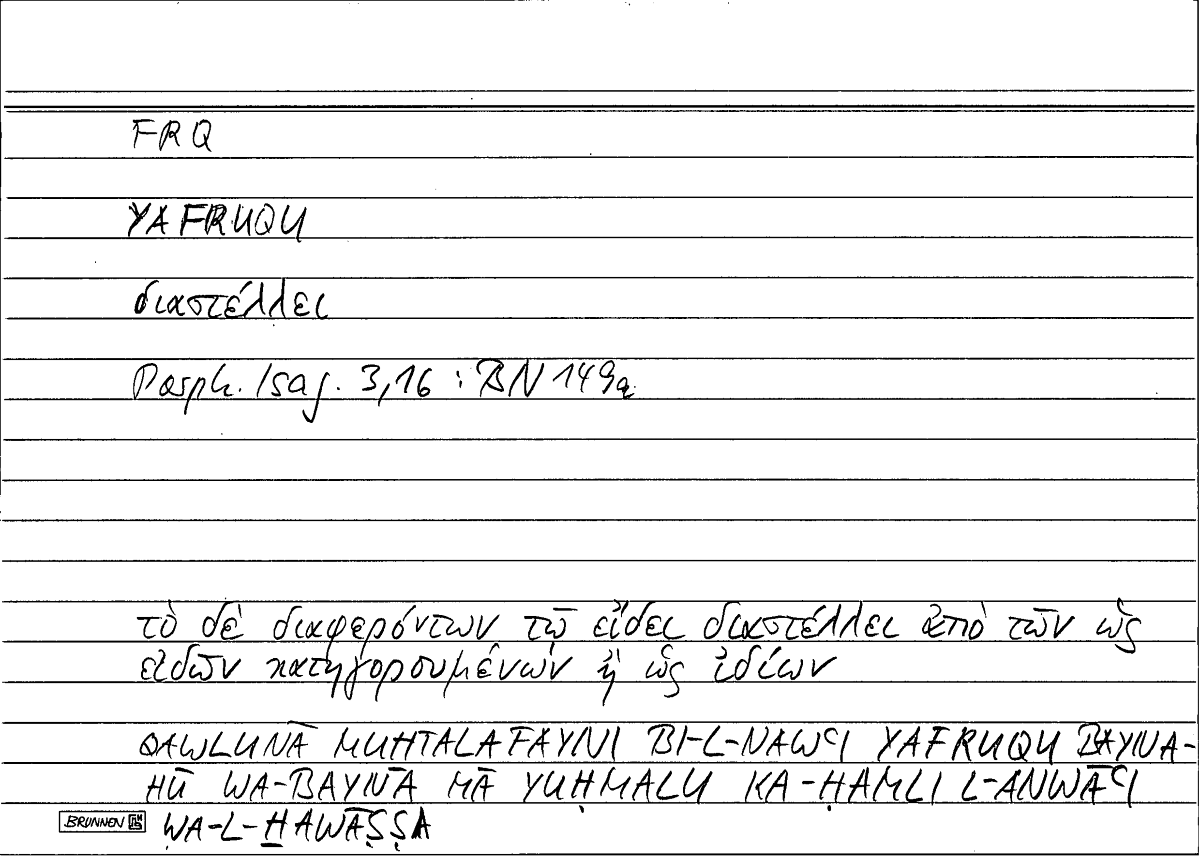 FRQ
YAFRUQU
διαστέλλει
Porph. Isag. 3,16 : BN 149a
τὸ δὲ διαφερόντων τῷ εἴδει διαστέλλει ἀπὸ τῶν ὡς
εἰδῶν κατηγορουμένων ἢ ὡς ἰδίων
QAWLUNĀ MUHTALAFAYNI BI-L-NAWʿI YAFRUQU BAYNA-
HŪ WA-BAYNA MĀ YUḤMALU KA-ḤAMLI L-ANWĀʿI
BRUNNEN WA-L-H̱AWĀṢṢA